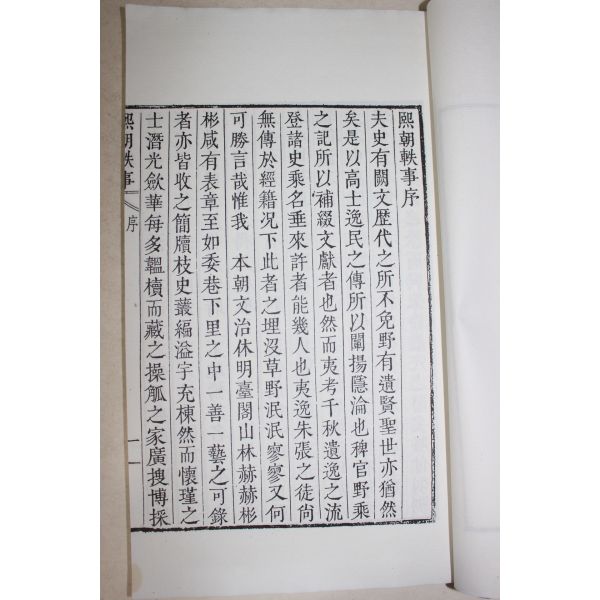 熙朝軼事序
夫史有闕文歷代之所不免野有遺賢聖世亦猶然
矣是以高士逸民之傳所以闡揚隱淪也稗官野乘
之記所以補綴文獻者也然而夷考千秋遺逸之流
登諸史乘名垂來許者能幾人也夷逸朱張之徒尙
無傳於經籍况下此者之埋沒草野泯泯寥寥又何
可勝言哉惟我 本朝文治休明臺閣山林赫赫彬
彬咸有表章至如委巷下里之中一善一藝之可錄
者亦皆收之簡牘枝史叢編溢宇充棟然而懷瑾之
士潛光歛華每多韞櫝而藏之操觚之家廣搜博採
熙朝軼事 序 一